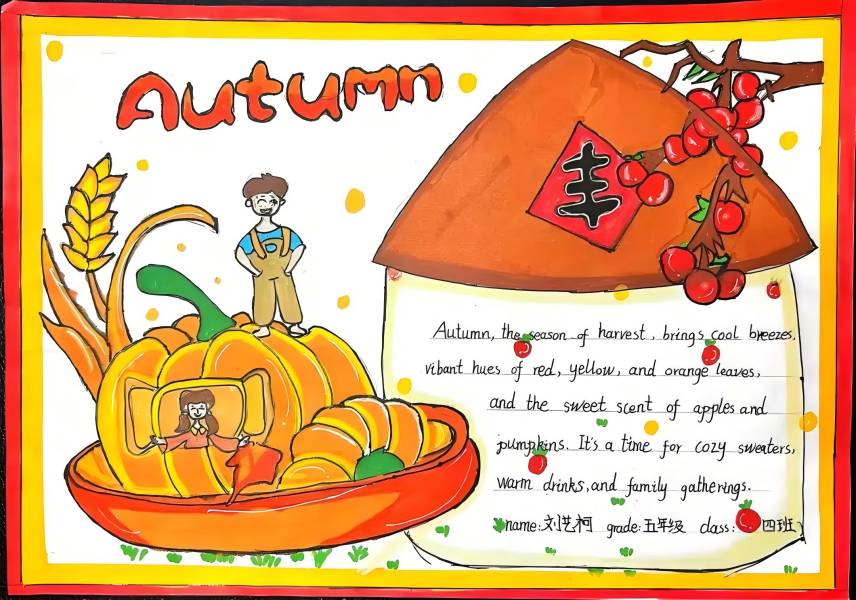 Autumn
丰
Autumn, the season of harvest, brings cool breezes,
vibant hues of red, yellow, and orange leaves,
and the sweet scent of apples and
pumpkins. It's a time for cozy sweaters,
warm drinks, and family gatherings.
name: 刘艺柯 grade: 五年级 class: 四班